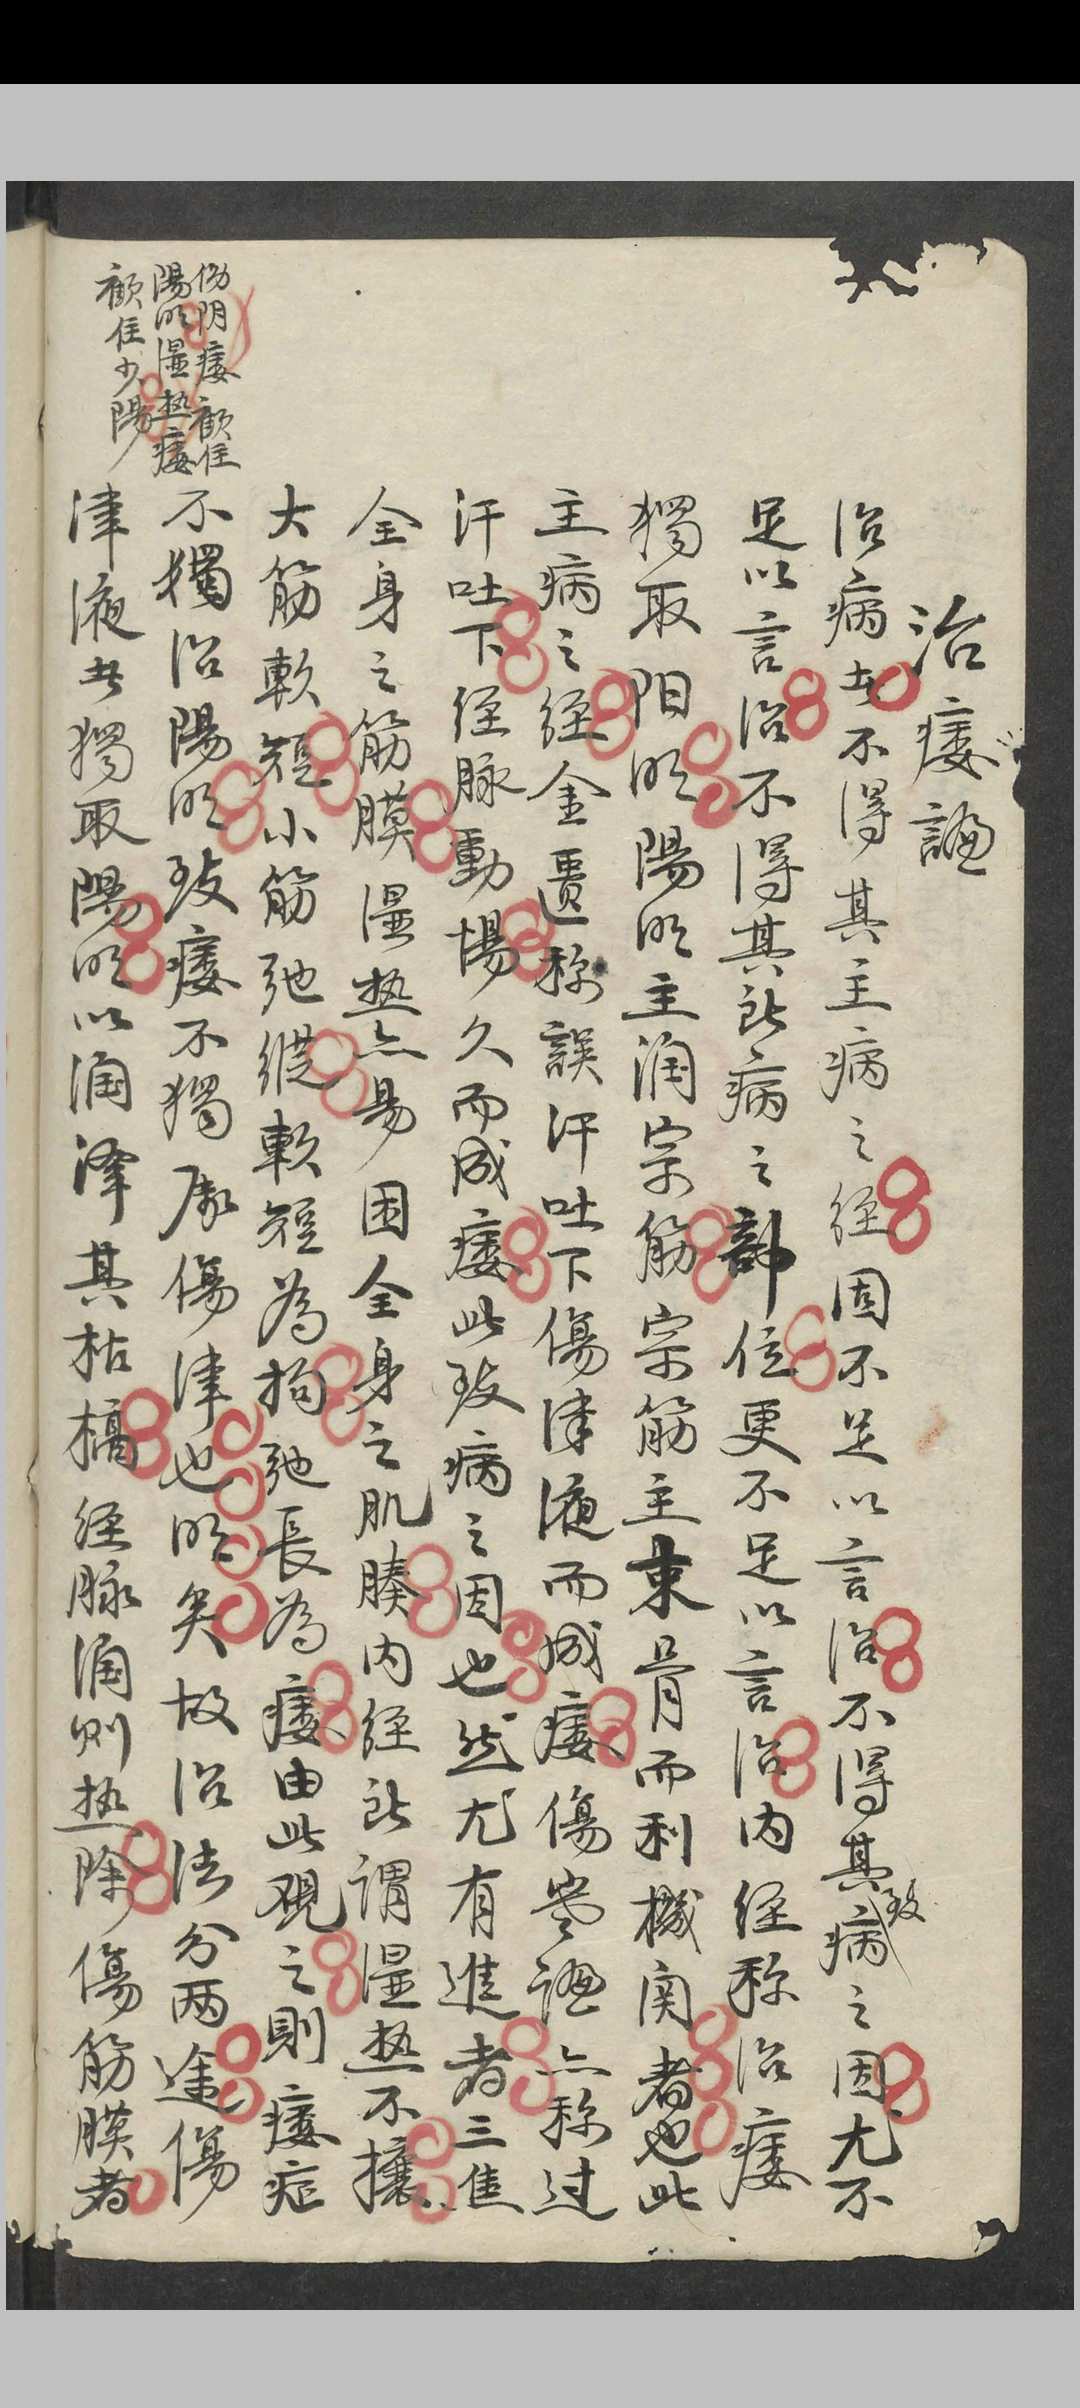 治痿論
治病者不得其主病之經固不足以言治不得其致病之因尤不
足以言治不得其所病之部位更不足以言治内經称治痿
獨取阳明陽明主润宗筋宗筋主束骨而利機関者也此
主病之經金匱称誤汗吐下傷津液而成痿傷寒論亦称过
汗吐下經脉動惕久而成痿此致病之因也然尤有進者三焦
全身之筋膜湿热亦易困全身之肌腠内經所谓湿热不攘
大筋軟短小筋弛縱軟短為拘弛長為痿由此观之則痿症
不獨治陽明致痿不獨属傷津也明矣故治法分两途傷
津液者獨取陽明以润泽其枯槁經脉润则热除傷筋膜者
阴痿
陽明湿热痿
住少陽